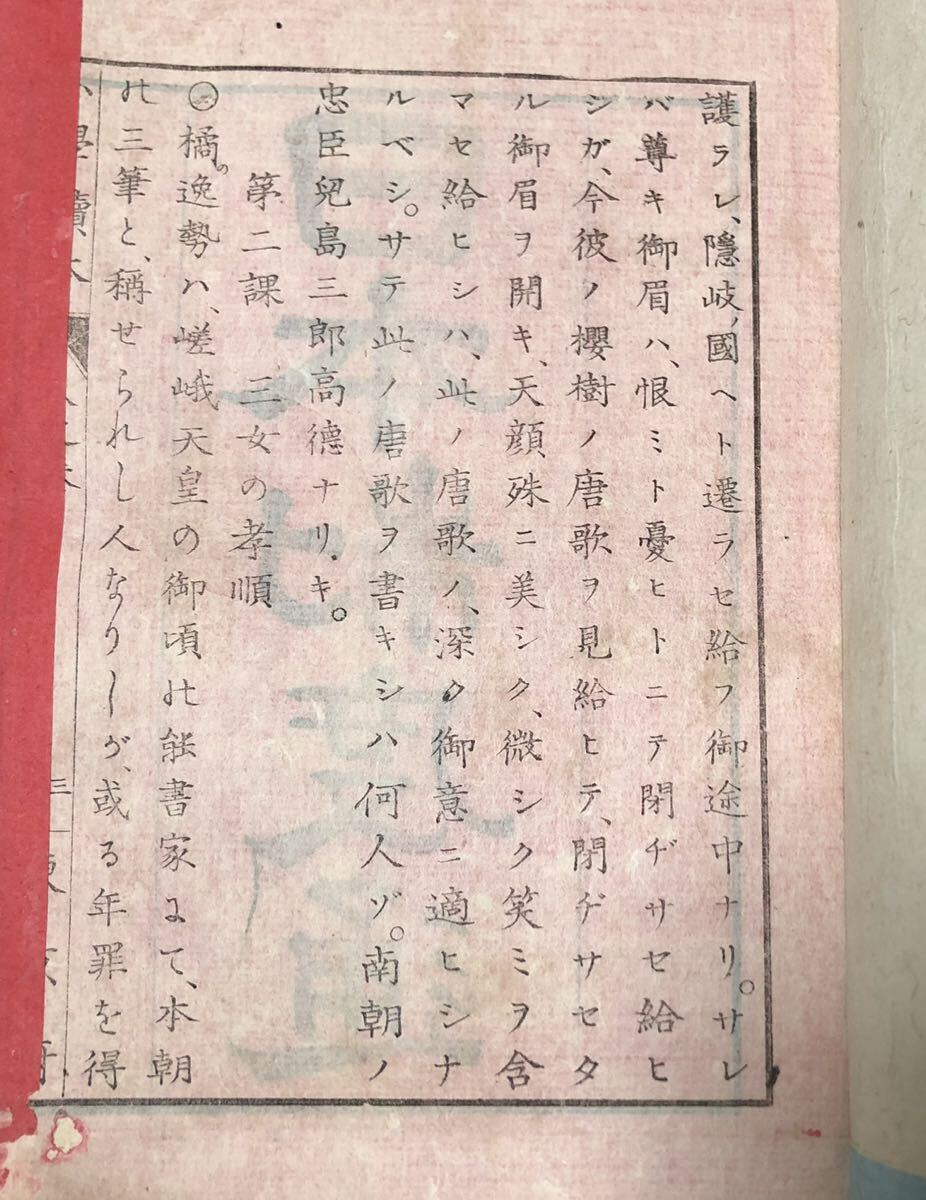 護ラレ、隱岐ノ國ヘト遷ラセ給フ御途中ナリ。サレ
バ尊キ御眉ハ、恨ミト憂ヒトニテ閉ヂサセ給ヒ
シガ、今彼ノ櫻樹ノ唐歌ヲ見給ヒテ、閉ヂサセタ
ル御眉ヲ開キ、天顔殊ニ美シク、微シク笑ミヲ含
マセ給ヒシハ、此ノ唐歌ノ、深ク御意ニ適ヒシナ
ルベシ。サテ此ノ唐歌ヲ書キシハ何人ゾ。南朝ノ
忠臣兒島三郎高德ナリキ。
第二課 三女の孝順
橘の逸勢ハ、嵯峨天皇の御頃の能書家にて、本朝
の三筆と、稱せられし人なりしが、或る年罪を得
學讀本
三